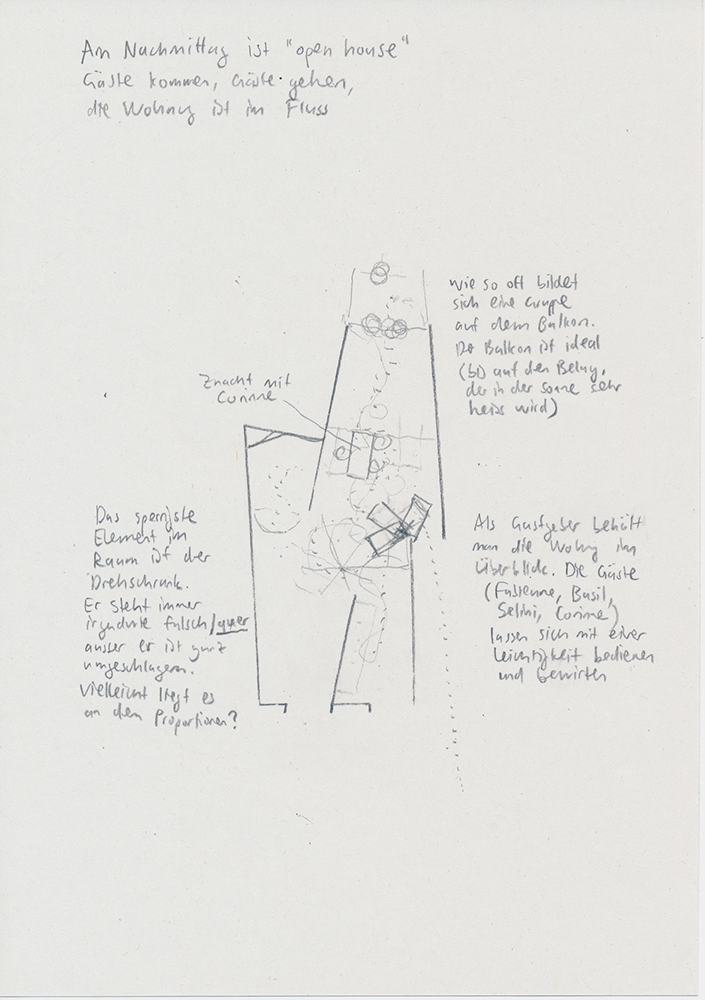 Am Nachmittag ist "open house"
Gäste kommen, Gäste gehen,
die Wohnung ist im Fluss
wie so oft bildet
sich eine Gruppe
auf dem Balkon.
Der Balkon ist ideal
(bis auf den Belag,
der in der Sonne sehr
heiss wird)
Znacht mit
Corinne
Das sperrigste
Element im
Raum ist der
Drehschrank.
Er steht immer
irgendwie falsch/quer
ausser er ist ganz
umgeschlagen.
Vielleicht liegt es
an den Proportionen?
Als Gastgeber behält
man die Wohng im
Überblick. Die Gäste
(Fabienne, Basil,
Selini, Corinne)
lassen sich mit einer
Leichtigkeit bedienen
und bewirten